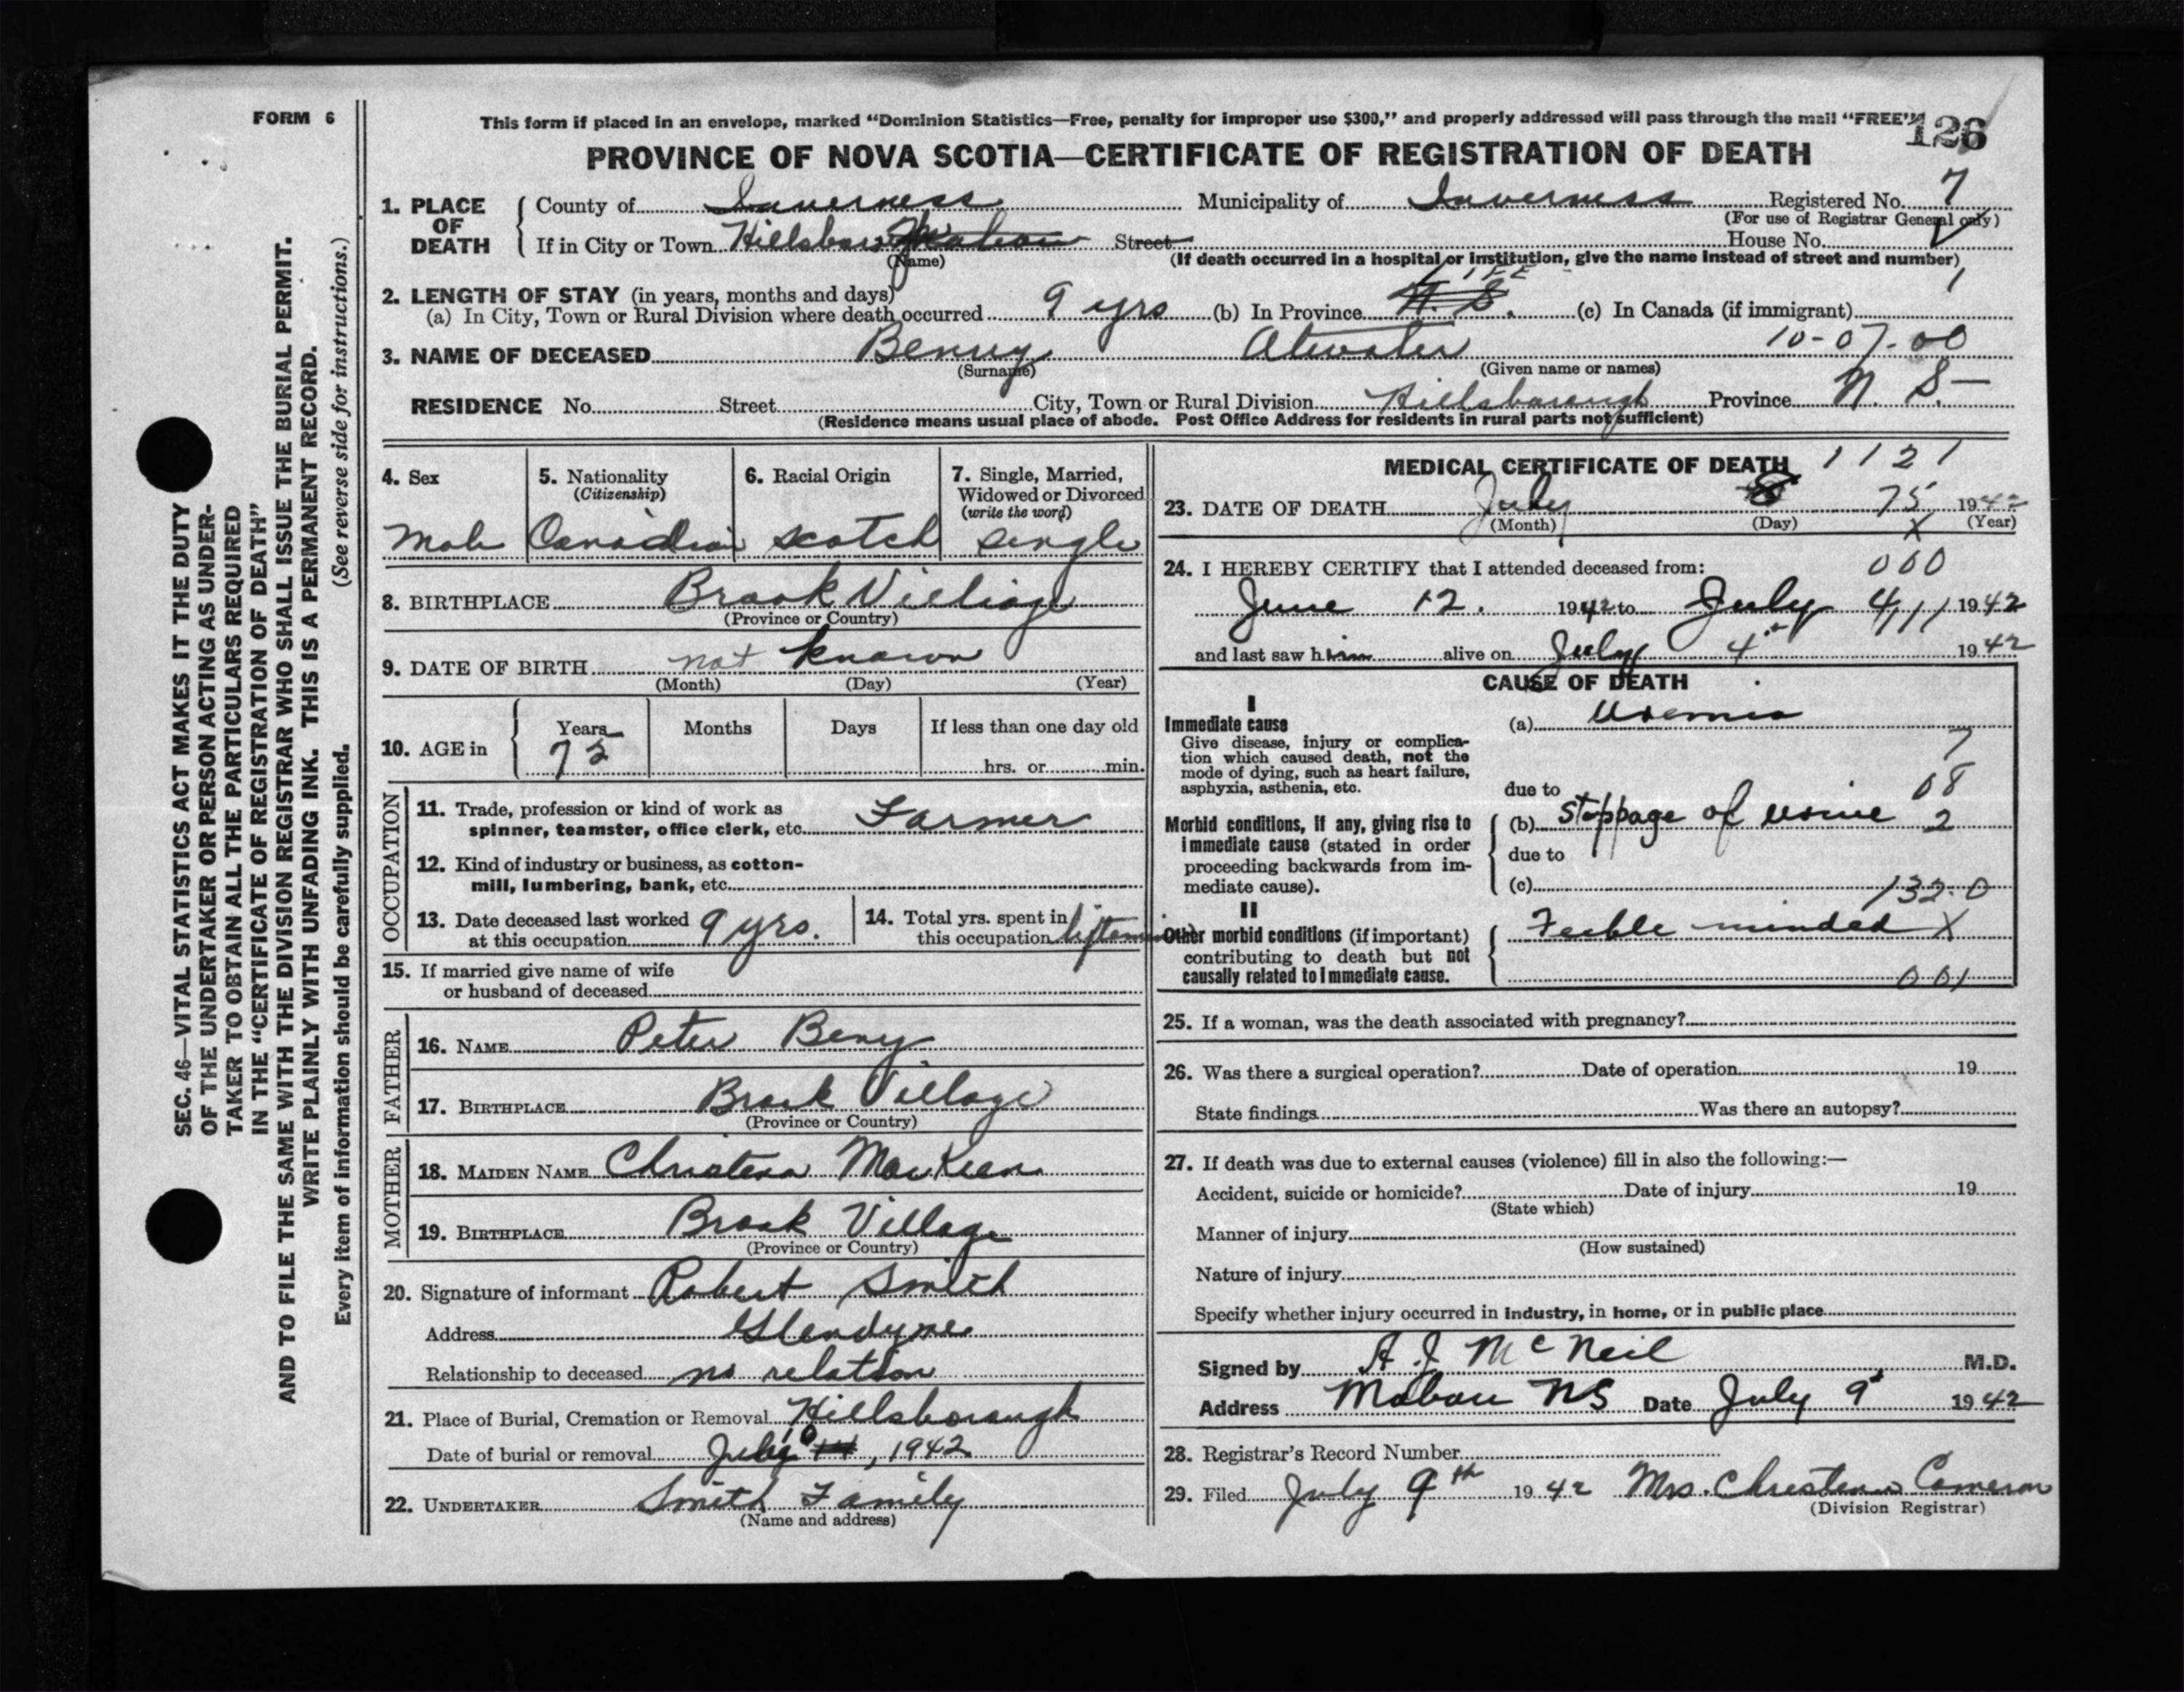 FORM 6
This form if placed in an envelope, marked “Dominion Statistics—Free, penalty for improper use $300,” and properly addressed will pass through the mail “FREE”
126
PROVINCE OF NOVA SCOTIA—CERTIFICATE OF REGISTRATION OF DEATH
1. PLACE OF DEATH
County of Inverness Municipality of Inverness Registered No. 7
(For use of Registrar General only)
If in City or Town Hillsboro Street House No.
(Name) (If death occurred in a hospital or institution, give the name instead of street and number)
2. LENGTH OF STAY (in years, months and days) LIFE 1
(a) In City, Town or Rural Division where death occurred 9 yrs (b) In Province N. S. (c) In Canada (if immigrant)
3. NAME OF DECEASED Atwater 10-07-00
(Surname) (Given name or names)
RESIDENCE No. Street City, Town or Rural Division Hillsborough Province N. S.—
(Residence means usual place of abode. Post Office Address for residents in rural parts not sufficient)
4. Sex
5. Nationality
(Citizenship)
6. Racial Origin
7. Single, Married,
Widowed or Divorced
(write the word)
Male Canadian scotch single
8. BIRTHPLACE Brook Villiage
(Province or Country)
9. DATE OF BIRTH not known
(Month) (Day) (Year)
10. AGE in
Years Months Days If less than one day old
hrs. or min.
OCCUPATION
11. Trade, profession or kind of work as
spinner, teamster, office clerk, etc. Farmer
12. Kind of industry or business, as cotton-
mill, lumbering, bank, etc.
13. Date deceased last worked
at this occupation 9 yrs.
14. Total yrs. spent in
this occupation
15. If married give name of wife
or husband of deceased
FATHER
16. NAME Peter
17. BIRTHPLACE Brook Village
(Province or Country)
MOTHER
18. MAIDEN NAME Christena MacKeen
19. BIRTHPLACE Brook Village
(Province or Country)
20. Signature of informant Robert Smith
Address Glendyne
Relationship to deceased no relation
21. Place of Burial, Cremation or Removal Hillsborough
Date of burial or removal July 10, 1942
22. UNDERTAKER Smith Family
(Name and address)
MEDICAL CERTIFICATE OF DEATH 1121
23. DATE OF DEATH July 8 75 1942
(Month) (Day) X (Year)
24. I HEREBY CERTIFY that I attended deceased from: 000
June 12. 1942 to July 4 1942
and last saw him alive on July 4 1942
CAUSE OF DEATH
I
Immediate cause
Give disease, injury or complica-
tion which caused death, not the
mode of dying, such as heart failure,
asphyxia, asthenia, etc.
(a) Uremia
7
due to 08
Morbid conditions, if any, giving rise to
immediate cause (stated in order
proceeding backwards from im-
mediate cause).
(b) Stoppage of urine 2
due to
(c) 132.0
II
Other morbid conditions (if important)
contributing to death but not
causally related to immediate cause.
Feeble minded X
001
25. If a woman, was the death associated with pregnancy?
26. Was there a surgical operation? Date of operation 19
State findings Was there an autopsy?
27. If death was due to external causes (violence) fill in also the following:—
Accident, suicide or homicide? Date of injury 19
(State which)
Manner of injury
(How sustained)
Nature of injury
Specify whether injury occurred in industry, in home, or in public place
Signed by A. J. McNeil M.D.
Address Mabou NS Date July 9 1942
28. Registrar’s Record Number
29. Filed July 9th 1942 Mrs. Christena Cameron
(Division Registrar)
SEC. 46—VITAL STATISTICS ACT MAKES IT THE DUTY
OF THE UNDERTAKER OR PERSON ACTING AS UNDER-
TAKER TO OBTAIN ALL THE PARTICULARS REQUIRED
IN THE “CERTIFICATE OF REGISTRATION OF DEATH”
AND TO FILE THE SAME WITH THE DIVISION REGISTRAR WHO SHALL ISSUE THE BURIAL PERMIT.
WRITE PLAINLY WITH UNFADING INK. THIS IS A PERMANENT RECORD.
Every item of information should be carefully supplied. (See reverse side for instructions.)